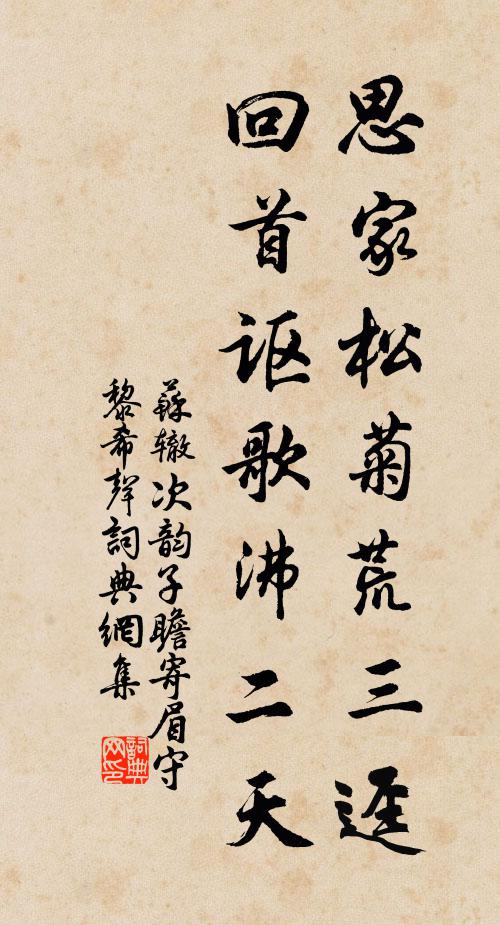 思家松菊荒三逕
回首讴歌沸二天
蘇辙次韵子瞻寄眉守
黎希聲詞典網集
詞典
网印